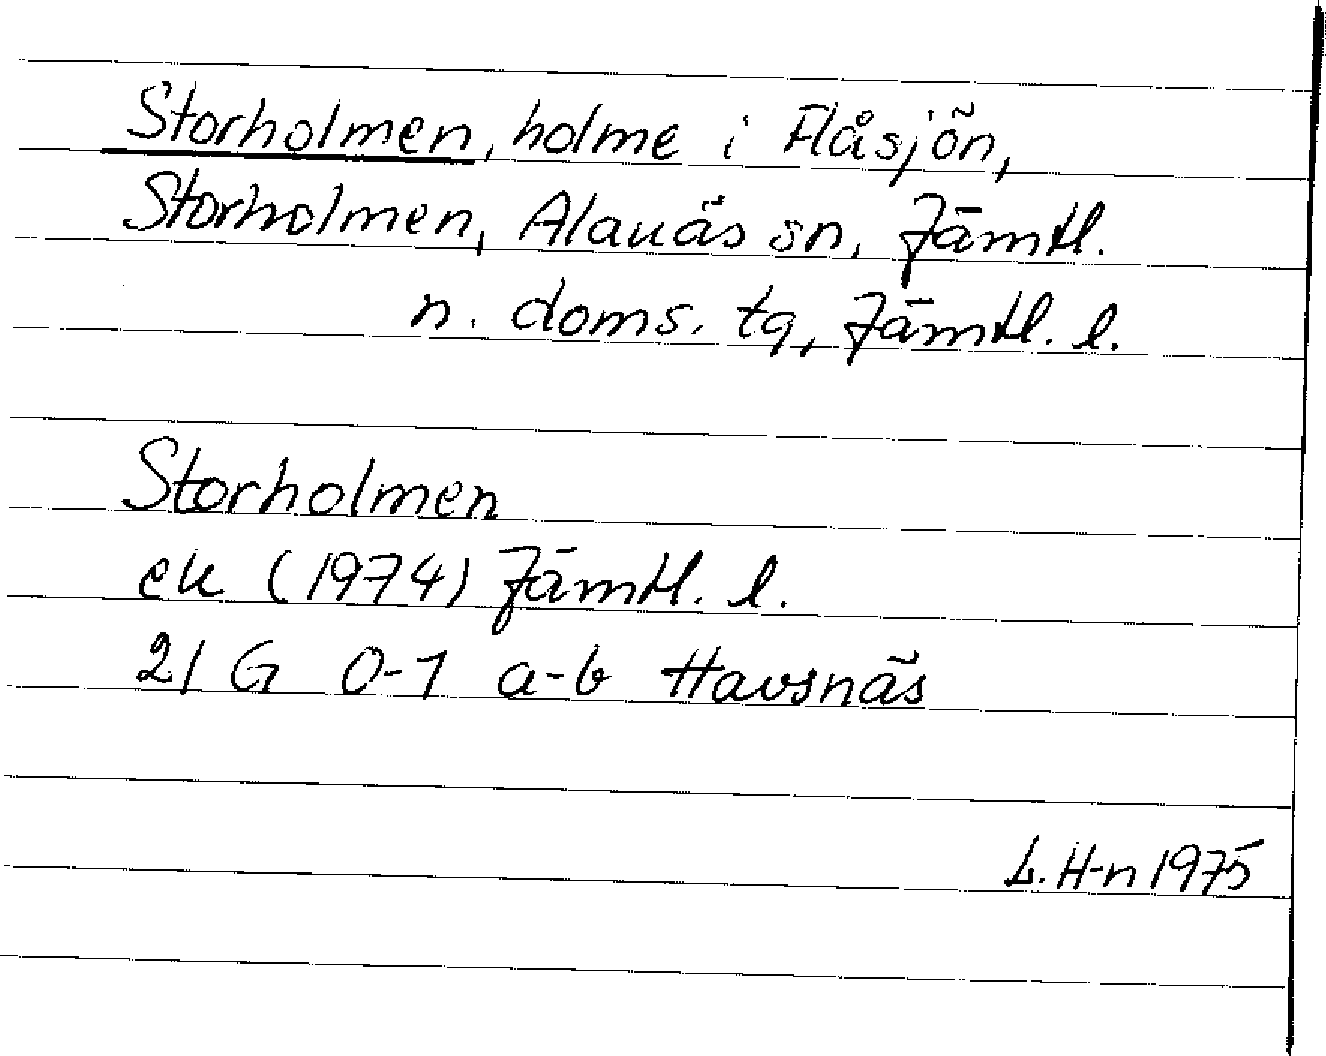 Storholmen, holme i Flåsjön,
Storholmen, Alanäs sn, Jämtl.
n. doms. tg, Jämtl. l.
Storholmen
ek (1974) Jämtl. l.
21 G 0-1 a-b Havsnäs
L. H-n 1975